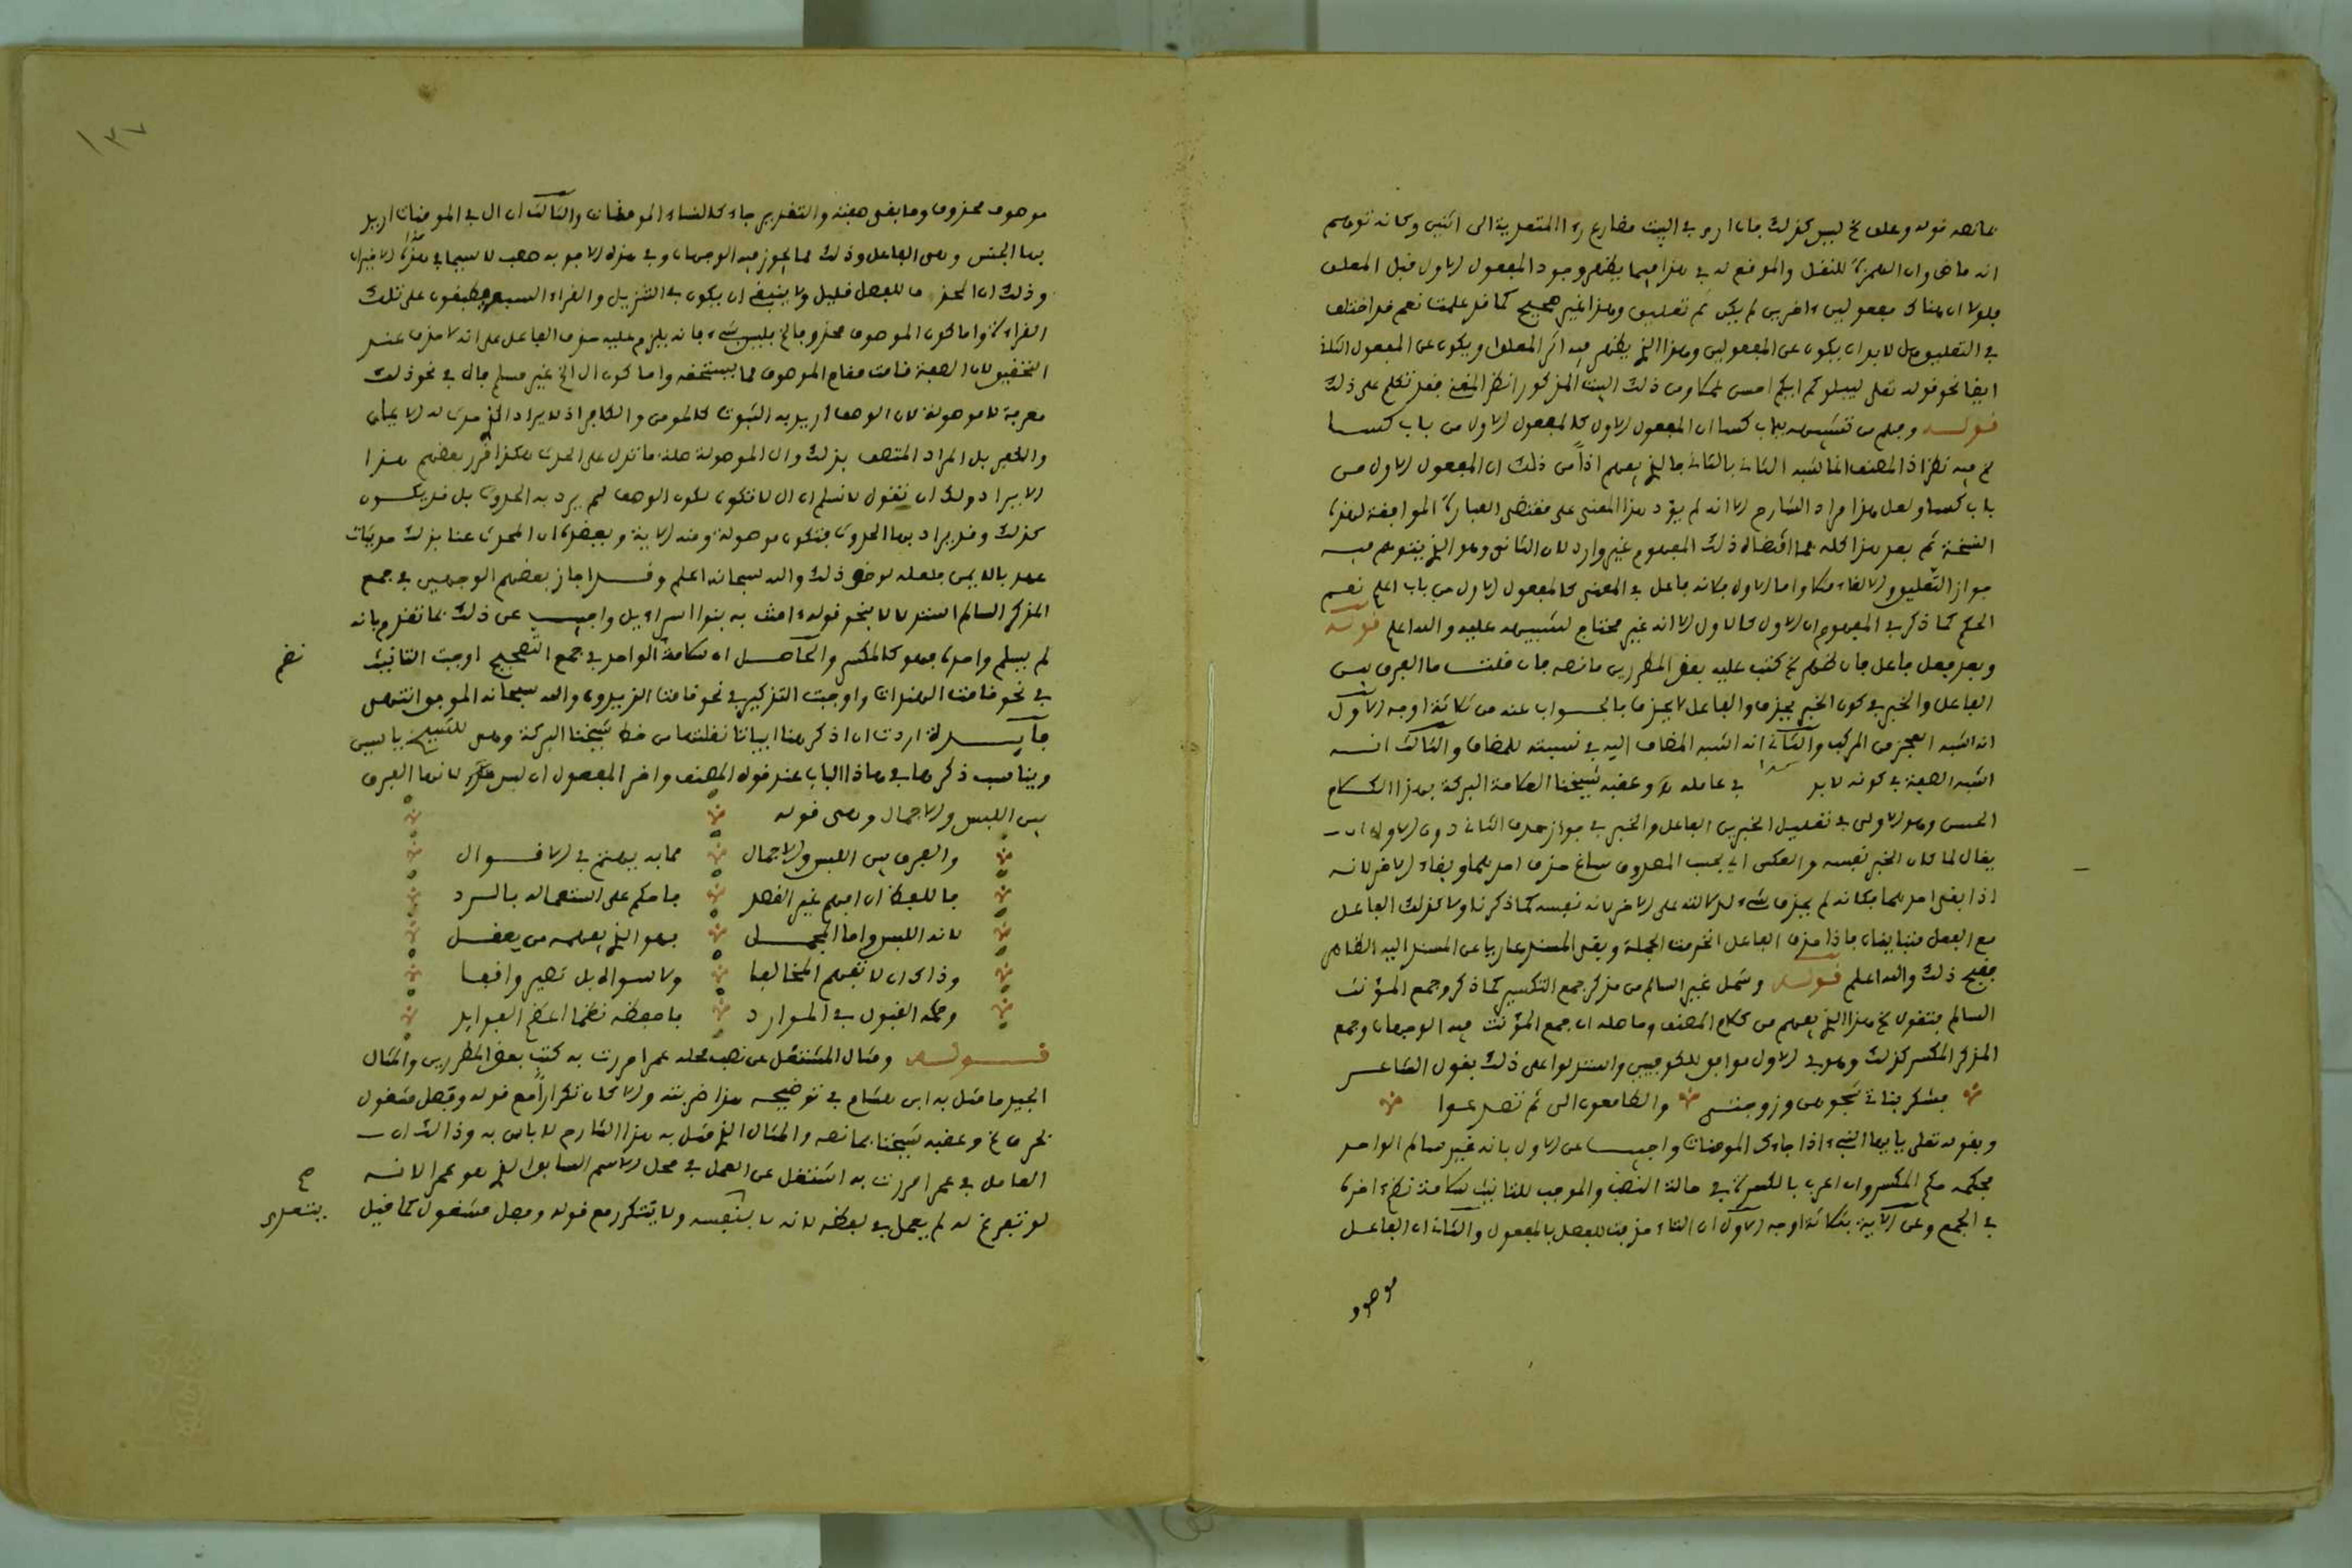 مانصه قوله وعلق الخ ليس كذلك فان ارى في البيت مضارع رءا المتعدية الى اثنين وكانه توهم
انه ماض وان الهمزة للنقل والموقع له في هذا فيما يظهر وجود المفعول الاول قبل المعلق
فلولا ان هناك مفعولين ءاخرين لم يكن ثم تعليق وهذا غير صحيح كما قد علمت نعم قد اختلف
في التعليق هل لابد ان يكون عن المفعولين وهذا الذي يظهر فيه اثر المعلق او يكون عن المفعول الثالث
ايضا نحو قوله تعلى ليبلوكم ايكم احسن عملا ومن ذلك البيت المذكور انظر المغني فقد تكلم على ذلك
قوله وفهم من تشبيهه بباب كسا ان المفعول الاول كالمفعول الاول من باب كسا
الخ فيه نظر اذ المصنف انما شبه الثاني بالثاني فالذي يفهم اذاً من ذلك ان المفعول الاول من
باب كسا ولعل هذا مراد الشارح الا انه لم يؤد هذا المعنى على مقتضى العبارة الموافقة لهذه
النسخة ثم بعد هذا كله فما اقتضاه ذلك المفهوم غير وارد لان الثاني وهو الذي يتوهم فيه
جواز التعليق والالغاء منكا واما الاول فكانه فاعل في المعنى كالمفعول الاول من باب اعلم نعم
الحكم كما ذكر في المفهوم ان الاول كالاول الا انه غير محتاج لتشبيهه عليه والله اعلم قوله
وبعد فعل فاعل فان ظهر الخ كتب عليه بعض المطررين مانصه فان قلت ما الفرق بين
الفاعل والخبر في كون الخبر يحذف والفاعل لا يحذف فالجواب عنه من ثلاثة اوجه الاول
انه اشبه العجز من المركب والثاني انه اشبه المضاف اليه في نسبته للمضاف والثالث انه
اشبه الصفة في كونه لابد في عامله وعقبه شيخنا العلامة البركة بهذا الكلام
الحسن وهو الاولى في تعليل الخبرين الفاعل والخبر في جواز حذف الثاني دون الاول ان
يقال لما كان الخبر نفسه والعكس اي بحسب المصدوق ساغ حذف احدهما وبقاء الاخر لانه
اذا بقي احدهما فكانه لم يحذف شيء لدلالته على الاخر لانه نفسه كما ذكرنا ولا كذلك الفاعل
مع الفعل فتباينان فاذا حذف الفاعل انخرمت الجملة وبقي المسند عاريا عن المسند اليه الظاهر
فقبح ذلك والله اعلم قوله وشمل غير السالم من مذكر جمع التكسير كما ذكر وجمع المؤنث
السالم فتقول الخ هذا الذي يفهم من كلام المصنف وحاصله ان جمع المؤنث فيه الوجهان وجمع
المذكر المكسر كذلك وهو في الاول موافق للكوفيين واستدلوا على ذلك بقول الشاعر
فبكى بناتي شجوهن وزوجتي والظاعنون الي ثم تصدعوا
وبقوله تعلى يا يها النبيء اذا جاءك المومنات واجيب عن الاول بانه غير سالم الواحد
فحكمه حكم المكسر وان اعرب بالكسرة في حالة النصب والموجب للتانيث سلامة نظم واحده
في الجمع وعن الآية بثلاثة اوجه الاول ان التاء حذفت للفصل بالمفعول والثاني ان الفاعل
موصوف
١٣٧
موصوف محذوف وما بقي صفته والتقدير جاءك النساء المومنات والثالث ان ال في المومنات اريد
بها الجنس وهي الفاعل وذلك مما يجوز فيه الوجهان وفي هذه الاجوبة ضعف لا سيما في هذا الاخيران
وذلك ان الحذف للفصل قليل ولا ينبغي ان يكون في التنزيل والقراء السبعة مطبقون على تلك
القراءة واما كون الموصوف محذوفا الخ فليس بشيء فانه يلزم عليه حذف الفاعل على انه لا حذف عند
التحقيق لان الصفة قامت مقام الموصوف مما يستحقه واما كون ال الخ غير مسلم فال في نحو ذلك
معرفة لا موصولة لان الوصف اريد به الثبوت كالمومن والكافر اذ لا يراد الذي حدث له الايمان
والكفر بل المراد المتصف بذلك وال الموصولة صلة ما تدل على الحدث هكذا قرر بعضهم هذا
الايراد ولك ان تقول لا نسلم ان ال لا تكون لكون الوصف لم يرد به الحدوث بل قد يكون
كذلك وقد يراد بها الحدوث فتكون موصولة ومنه الاية
عهد بالايمن فلعله لوحظ ذلك والله سبحانه اعلم وقد اجاز بعضهم الوجهين في جمع
المذكر السالم استدلالا بنحو قوله ءامنت به بنوا اسراءيل واجيب عن ذلك بما تقدم بانه
لم يسلم واحده فهو كالمكسر والحاصل ان سلامة الواحد في جمع التصحيح اوجبت التانيث
نظم
في نحو قامت الهندات واوجبت التذكير في نحو قام الزيدون والله سبحانه الموفق انتهى
فايدة اردت ان اذكر هنا ابياتا نقلتها من خط شيخنا البركة وهي للشيخ ياسين
ويناسب ذكرها في هاذا الباب عند قوله المصنف واخر المفعول ان لبس حذر لانها الفرق
بين اللبس والاجمال وهي قوله
والفرق بين اللبس والاجمال مما به يهتم في الاقوال
فاللفظ ان افهم غير القصد فاحكم على استعماله بالرد
لانه اللبس واما المجمل فهو الذي يفهمه من يعقل
وذاك ان لا تفهم المخالفا ولا سواه بل تصير واقفا
وحكمه القبول في الموارد فاحفظه نظما اعظم الفوايد
قوله ومثال المشتغل عن نصب محله عمرا مررت به كتب بعض المطررين والمثال
الجيد ما مثل به ابن هشام في توضيحه هذا ضربته والا كان تكرارا مع قوله وفصل مشغول
بحرف الخ وعقبه شيخنا بما نصه والمثال الذي مثل به هذا الشارح لا باس به وذالك ان
العامل في عمرا مررت به اشتغل عن العمل في محل الاسم السابق الذي هو عمرا لانه
لو تفرغ له لم يعمل في لفظه لانه لا بنفسه ولا يتكرر مع قوله وفصل مشغول كما قيل
يتعدى